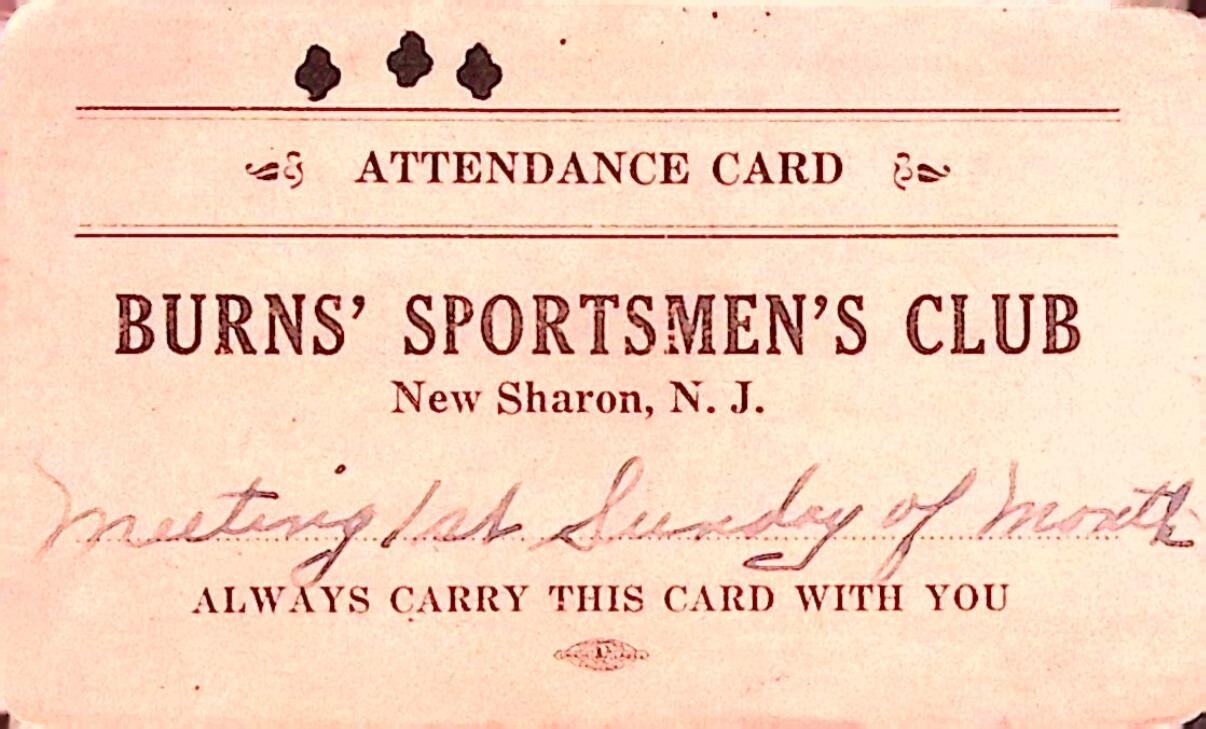 ATTENDANCE CARD
BURNS' SPORTSMEN'S CLUB
New Sharon, N. J.
Meeting 1st Sunday of Month
ALWAYS CARRY THIS CARD WITH YOU